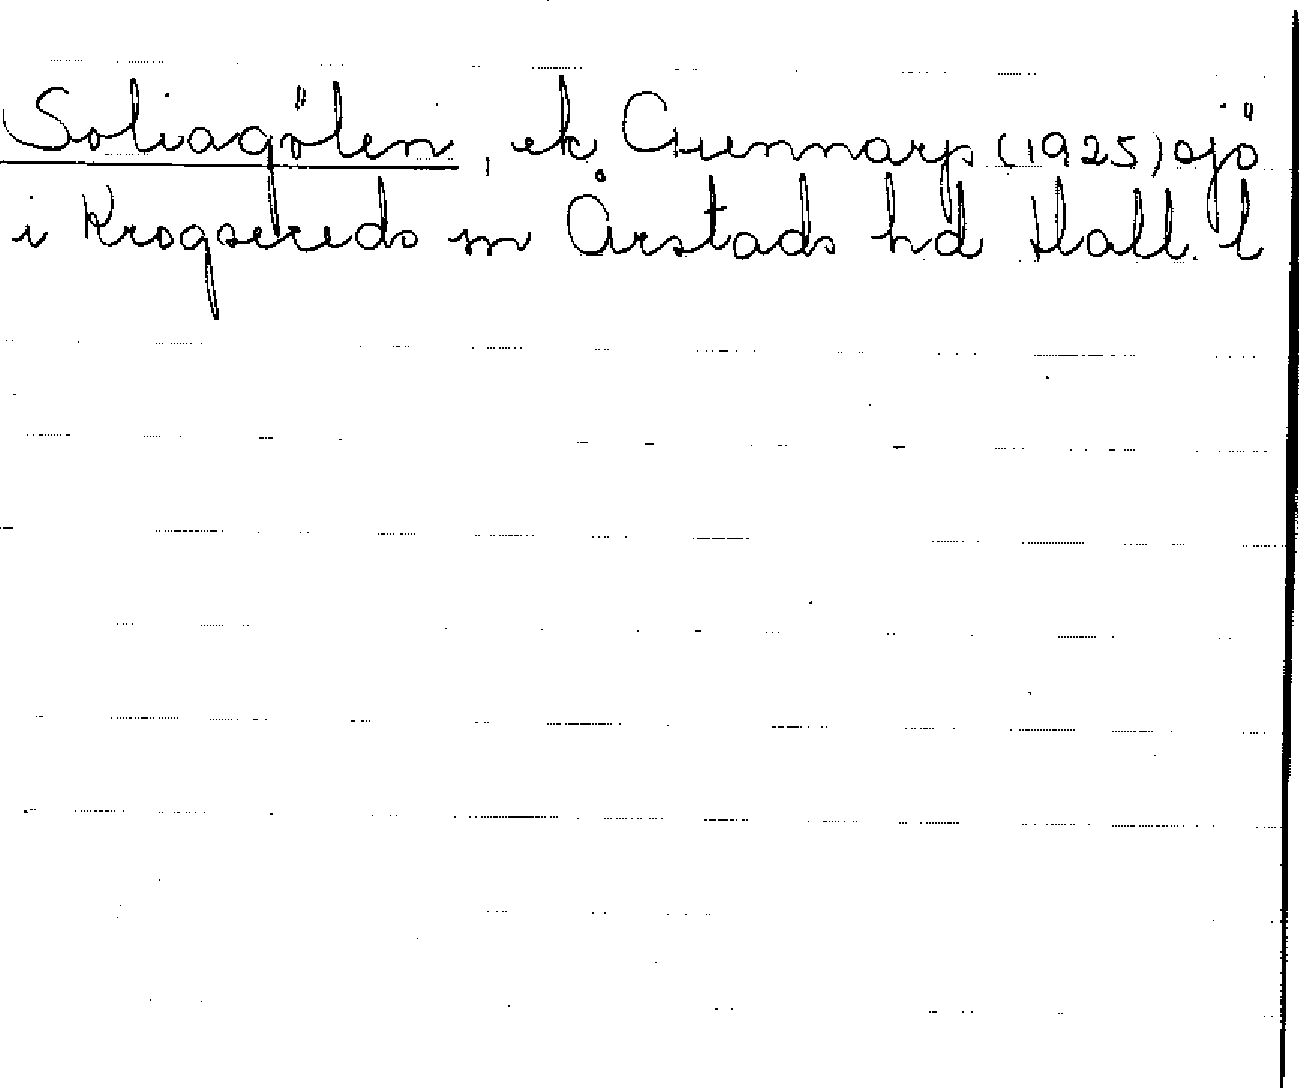 Soliagölen, ek Gunnarp (1925) sjö
i Krogsereds sn Årstads hd Hall. l